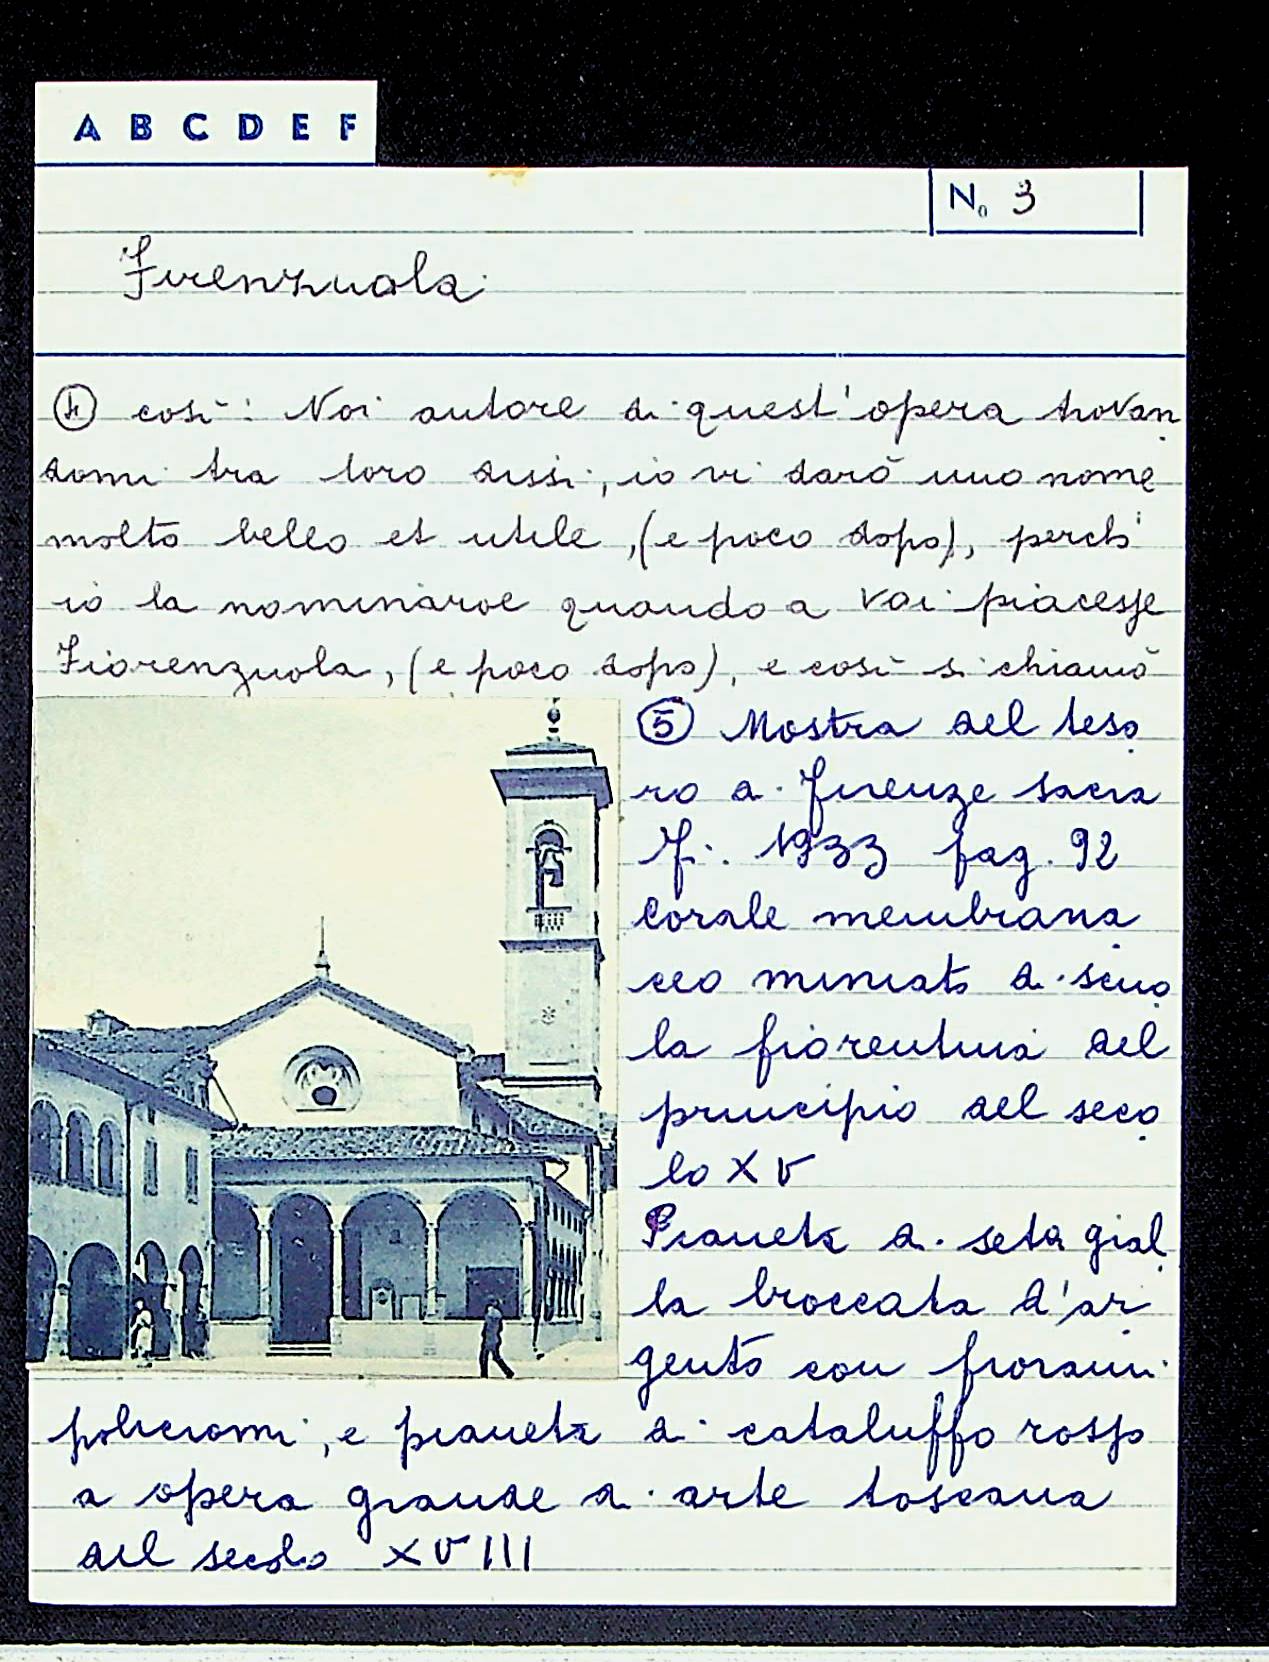 A B C D E F
No 3
Firenzuola
④ così: Noi autore di quest'opera trovan
domi tra loro dissi, io vi darò uno nome
molto bello et utile, (e poco dopo), perchè
io la nominaroe quando a voi piacesse
Fiorenzuola, (e poco dopo), e così si chiamò
⑤ Mostra del teso
ro a Firenze sacra
Fi. 1933 pag. 92
Corale membrana
ceo miniato di scuo
la fiorentina del
principio del seco
lo XV
Pianeta di seta gial
la broccata d'ar
gento con fiorami
policromi, e pianeta di cataluffo rosso
a opera grande di arte toscana
del secolo XVIII